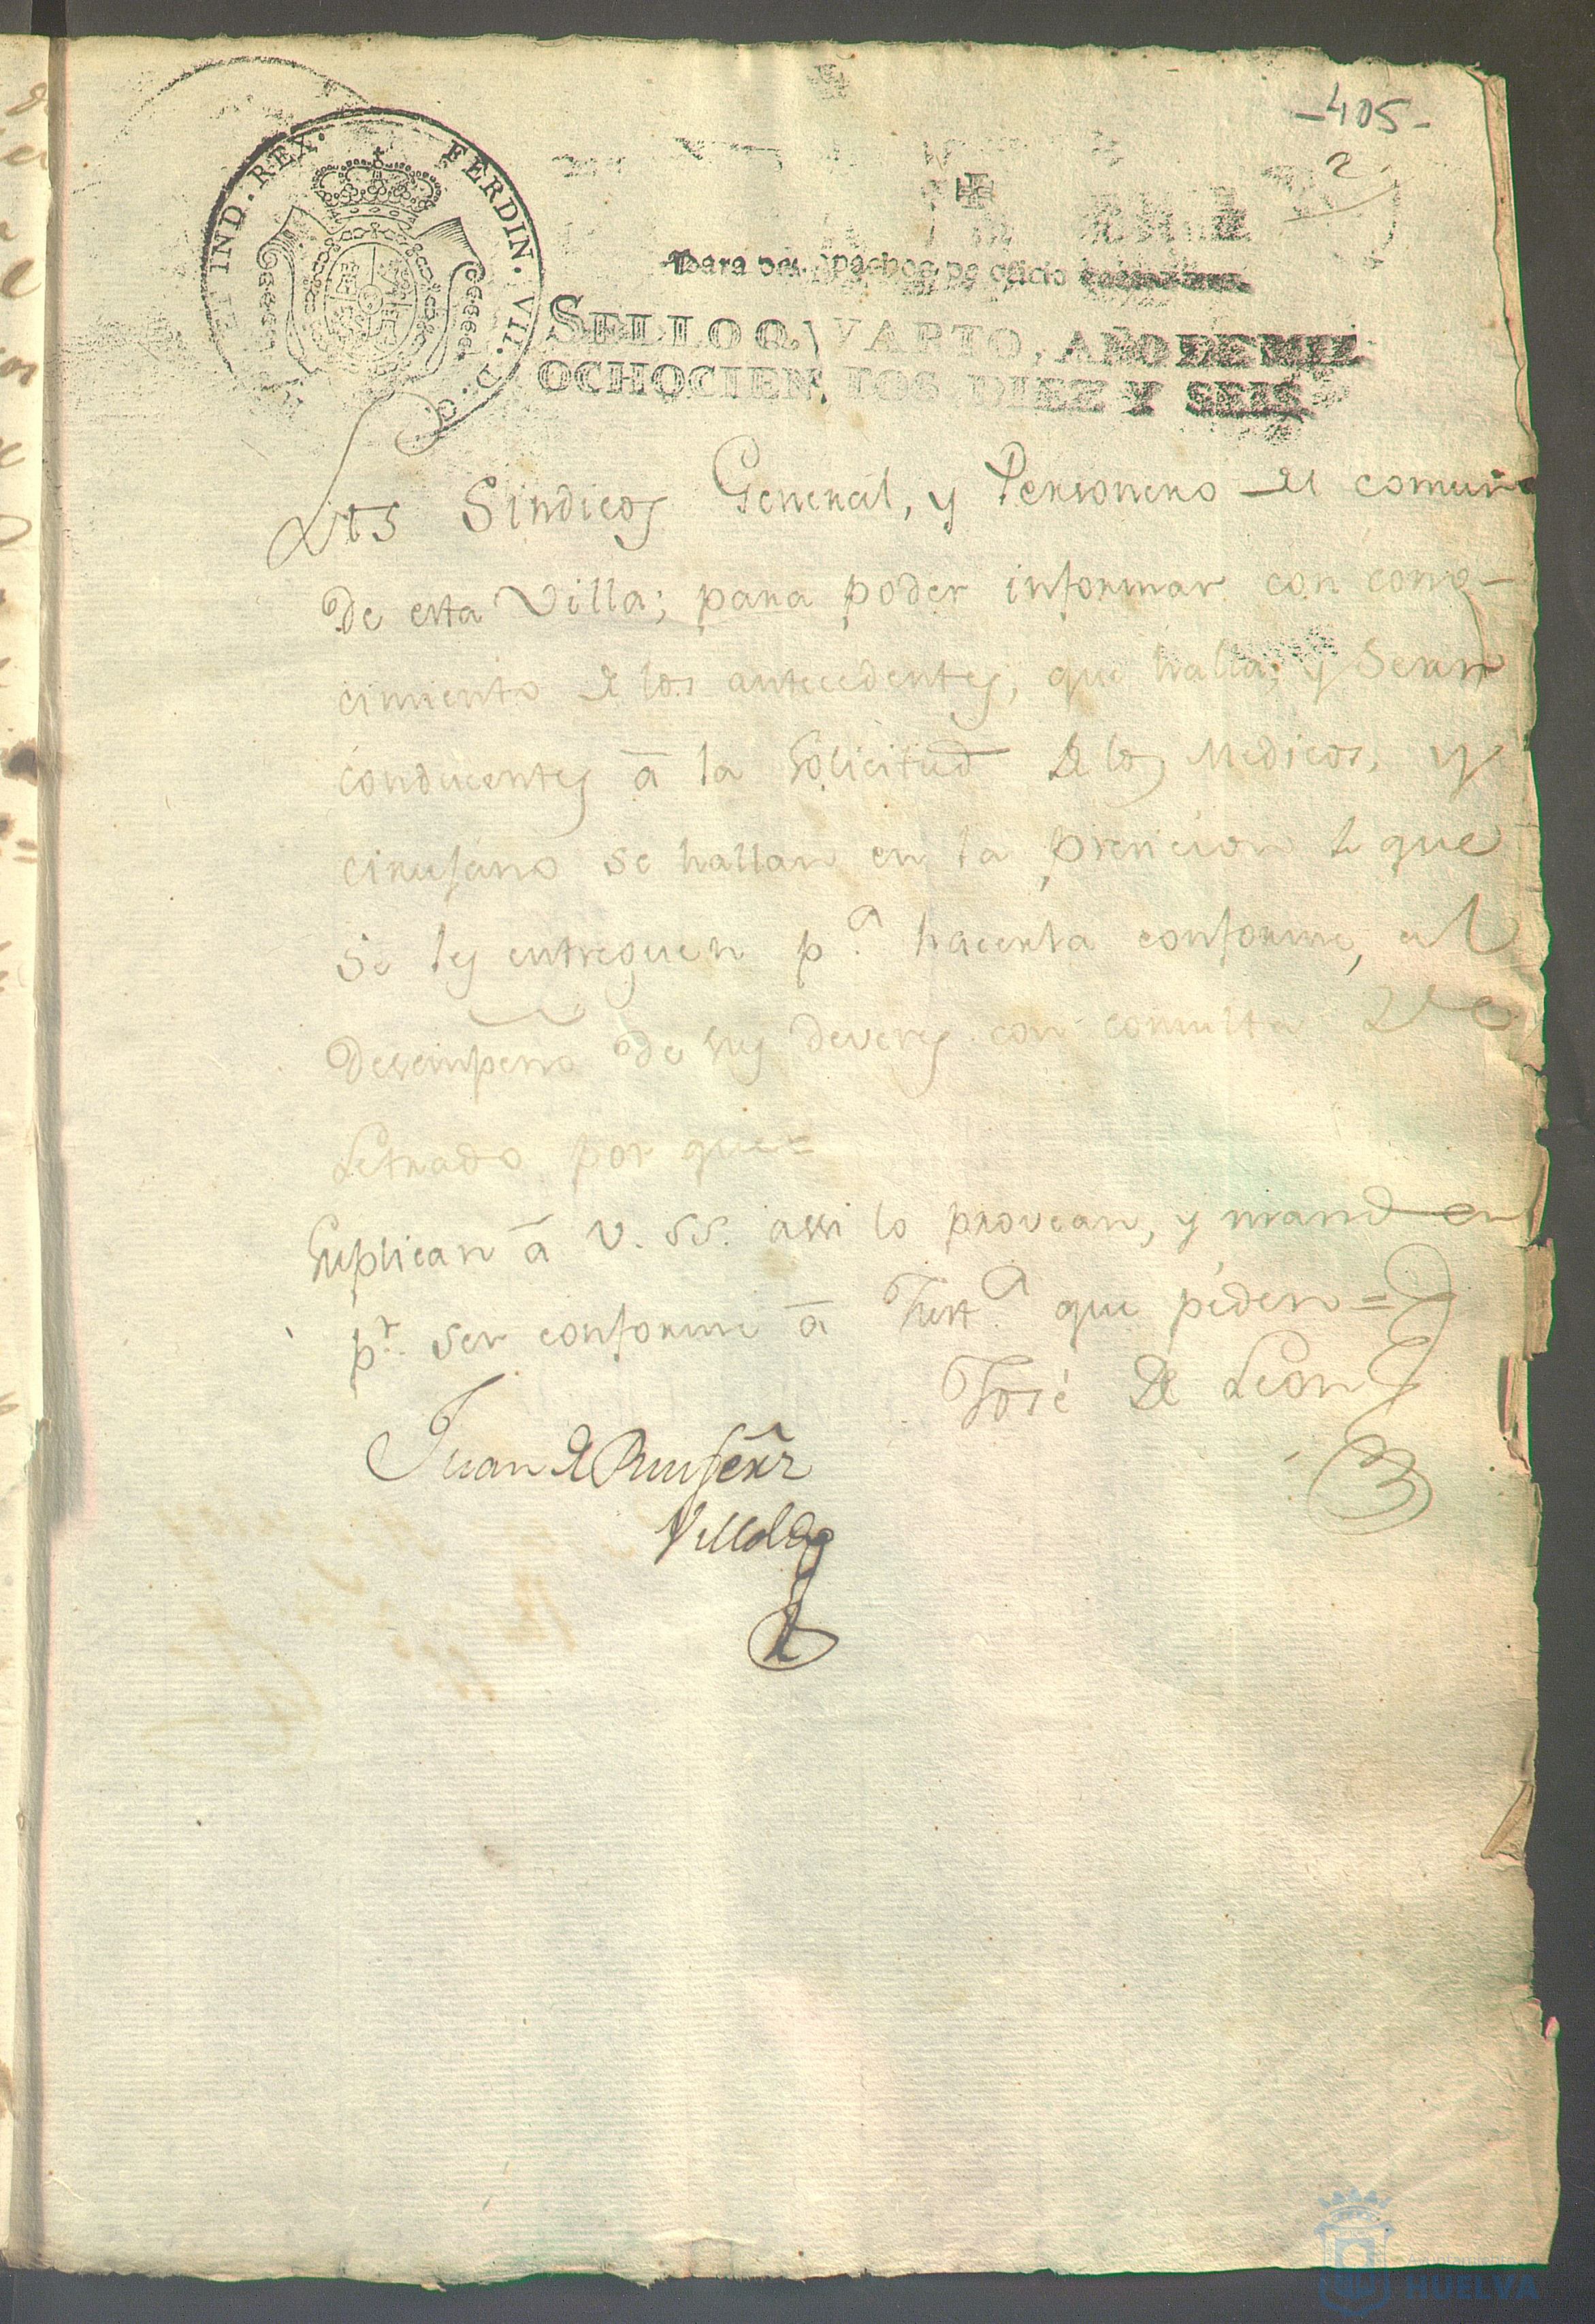 -405-
2
FERDIN. VII. D. G. ET IND. REX.
Para despachos de oficio
SELLO QVARTO, AÑO DE MIL
OCHOCIENTOS DIEZ Y SEIS
Los Sindicos General, y Personero del comun
De esta Villa; para poder informar con cono-
cimiento de los antecedentes, que halla; y Sean
conducentes â la Solicitud de los Medicos, y
cirujano se hallan en la precicion de que
se les entreguen p.ª hacerla conforme, al
Desempeño de sus deveres con consulta de
Letrado por que=
Suplican â V. SS. assi lo provean, y manden
p.r ser conforme â Just.ª que piden=
José de Leon
Juan de
HUELVA